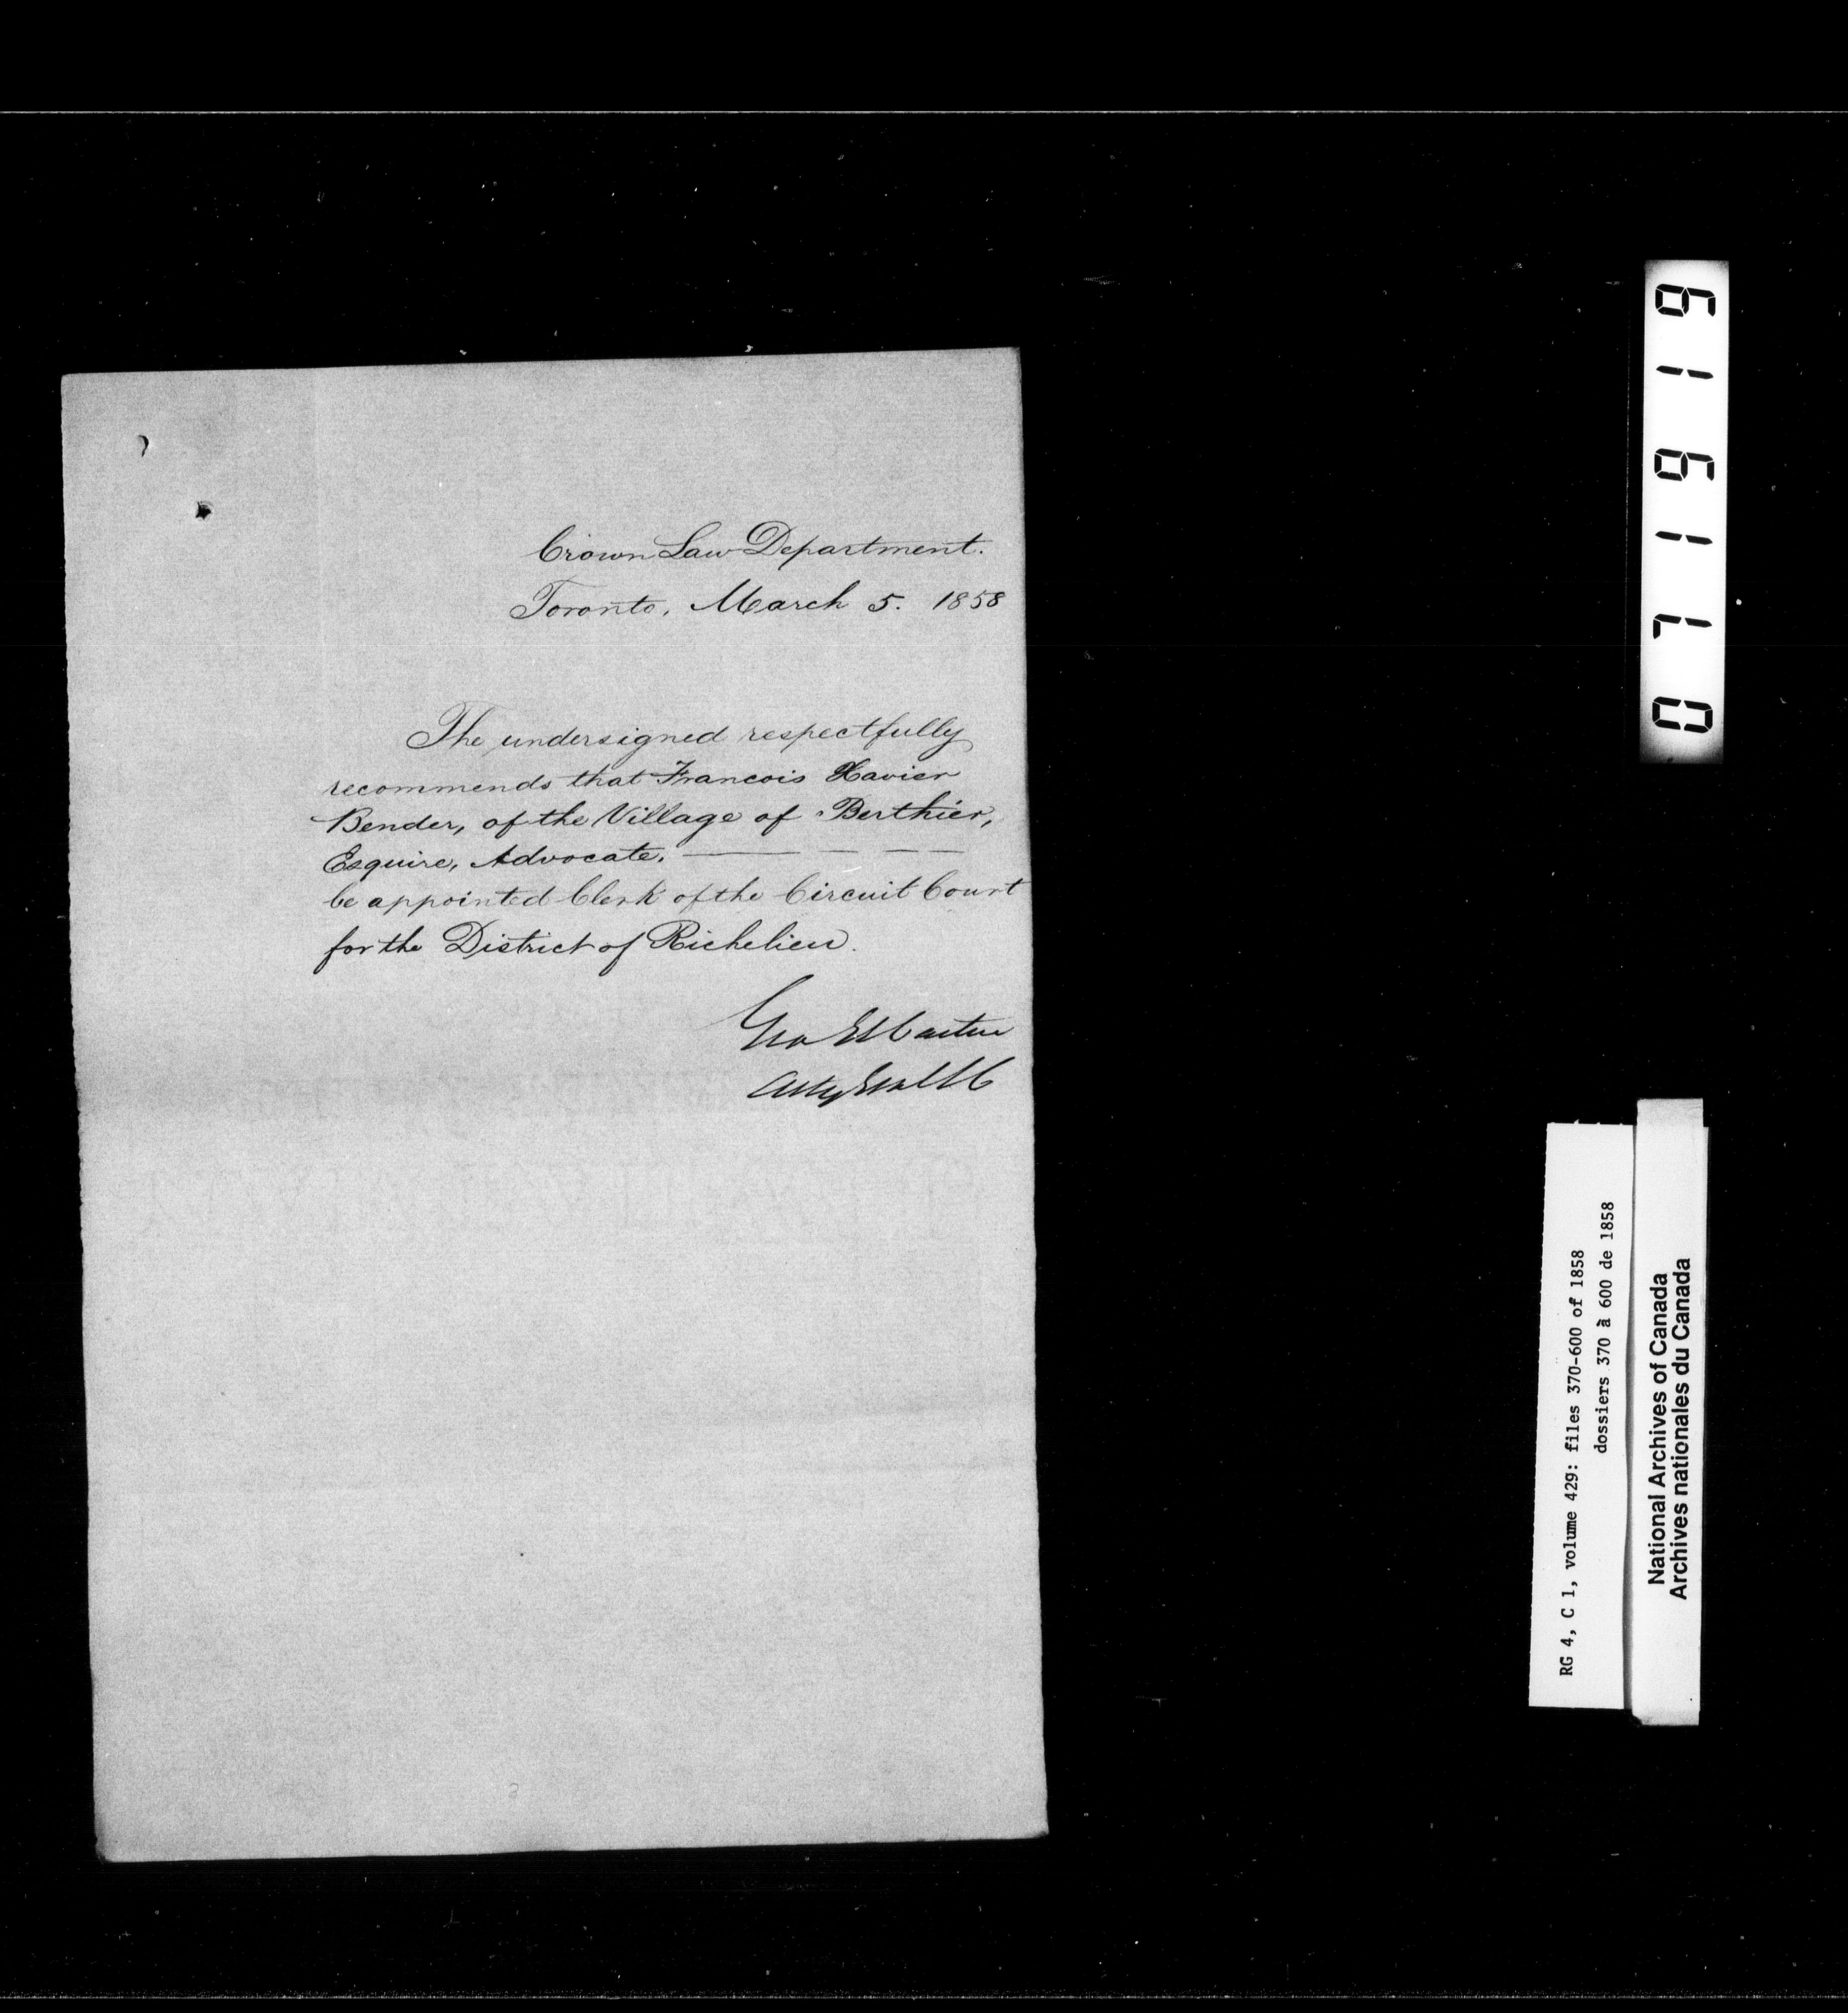 Crown Law Department.
Toronto, March 5. 1858
The undersigned respectfully
recommends that Francois Xavier
Bender, of the Village of Berthier,
Esquire, Advocate.
be appointed Clerk of the Circuit Court
for the District of Richelieu.
Geo E Cartier
Atty Genl LC
071919
RG 4, C 1, volume 429: files 370-600 of 1858
dossiers 370 à 600 de 1858
National Archives of Canada
Archives nationales du Canada